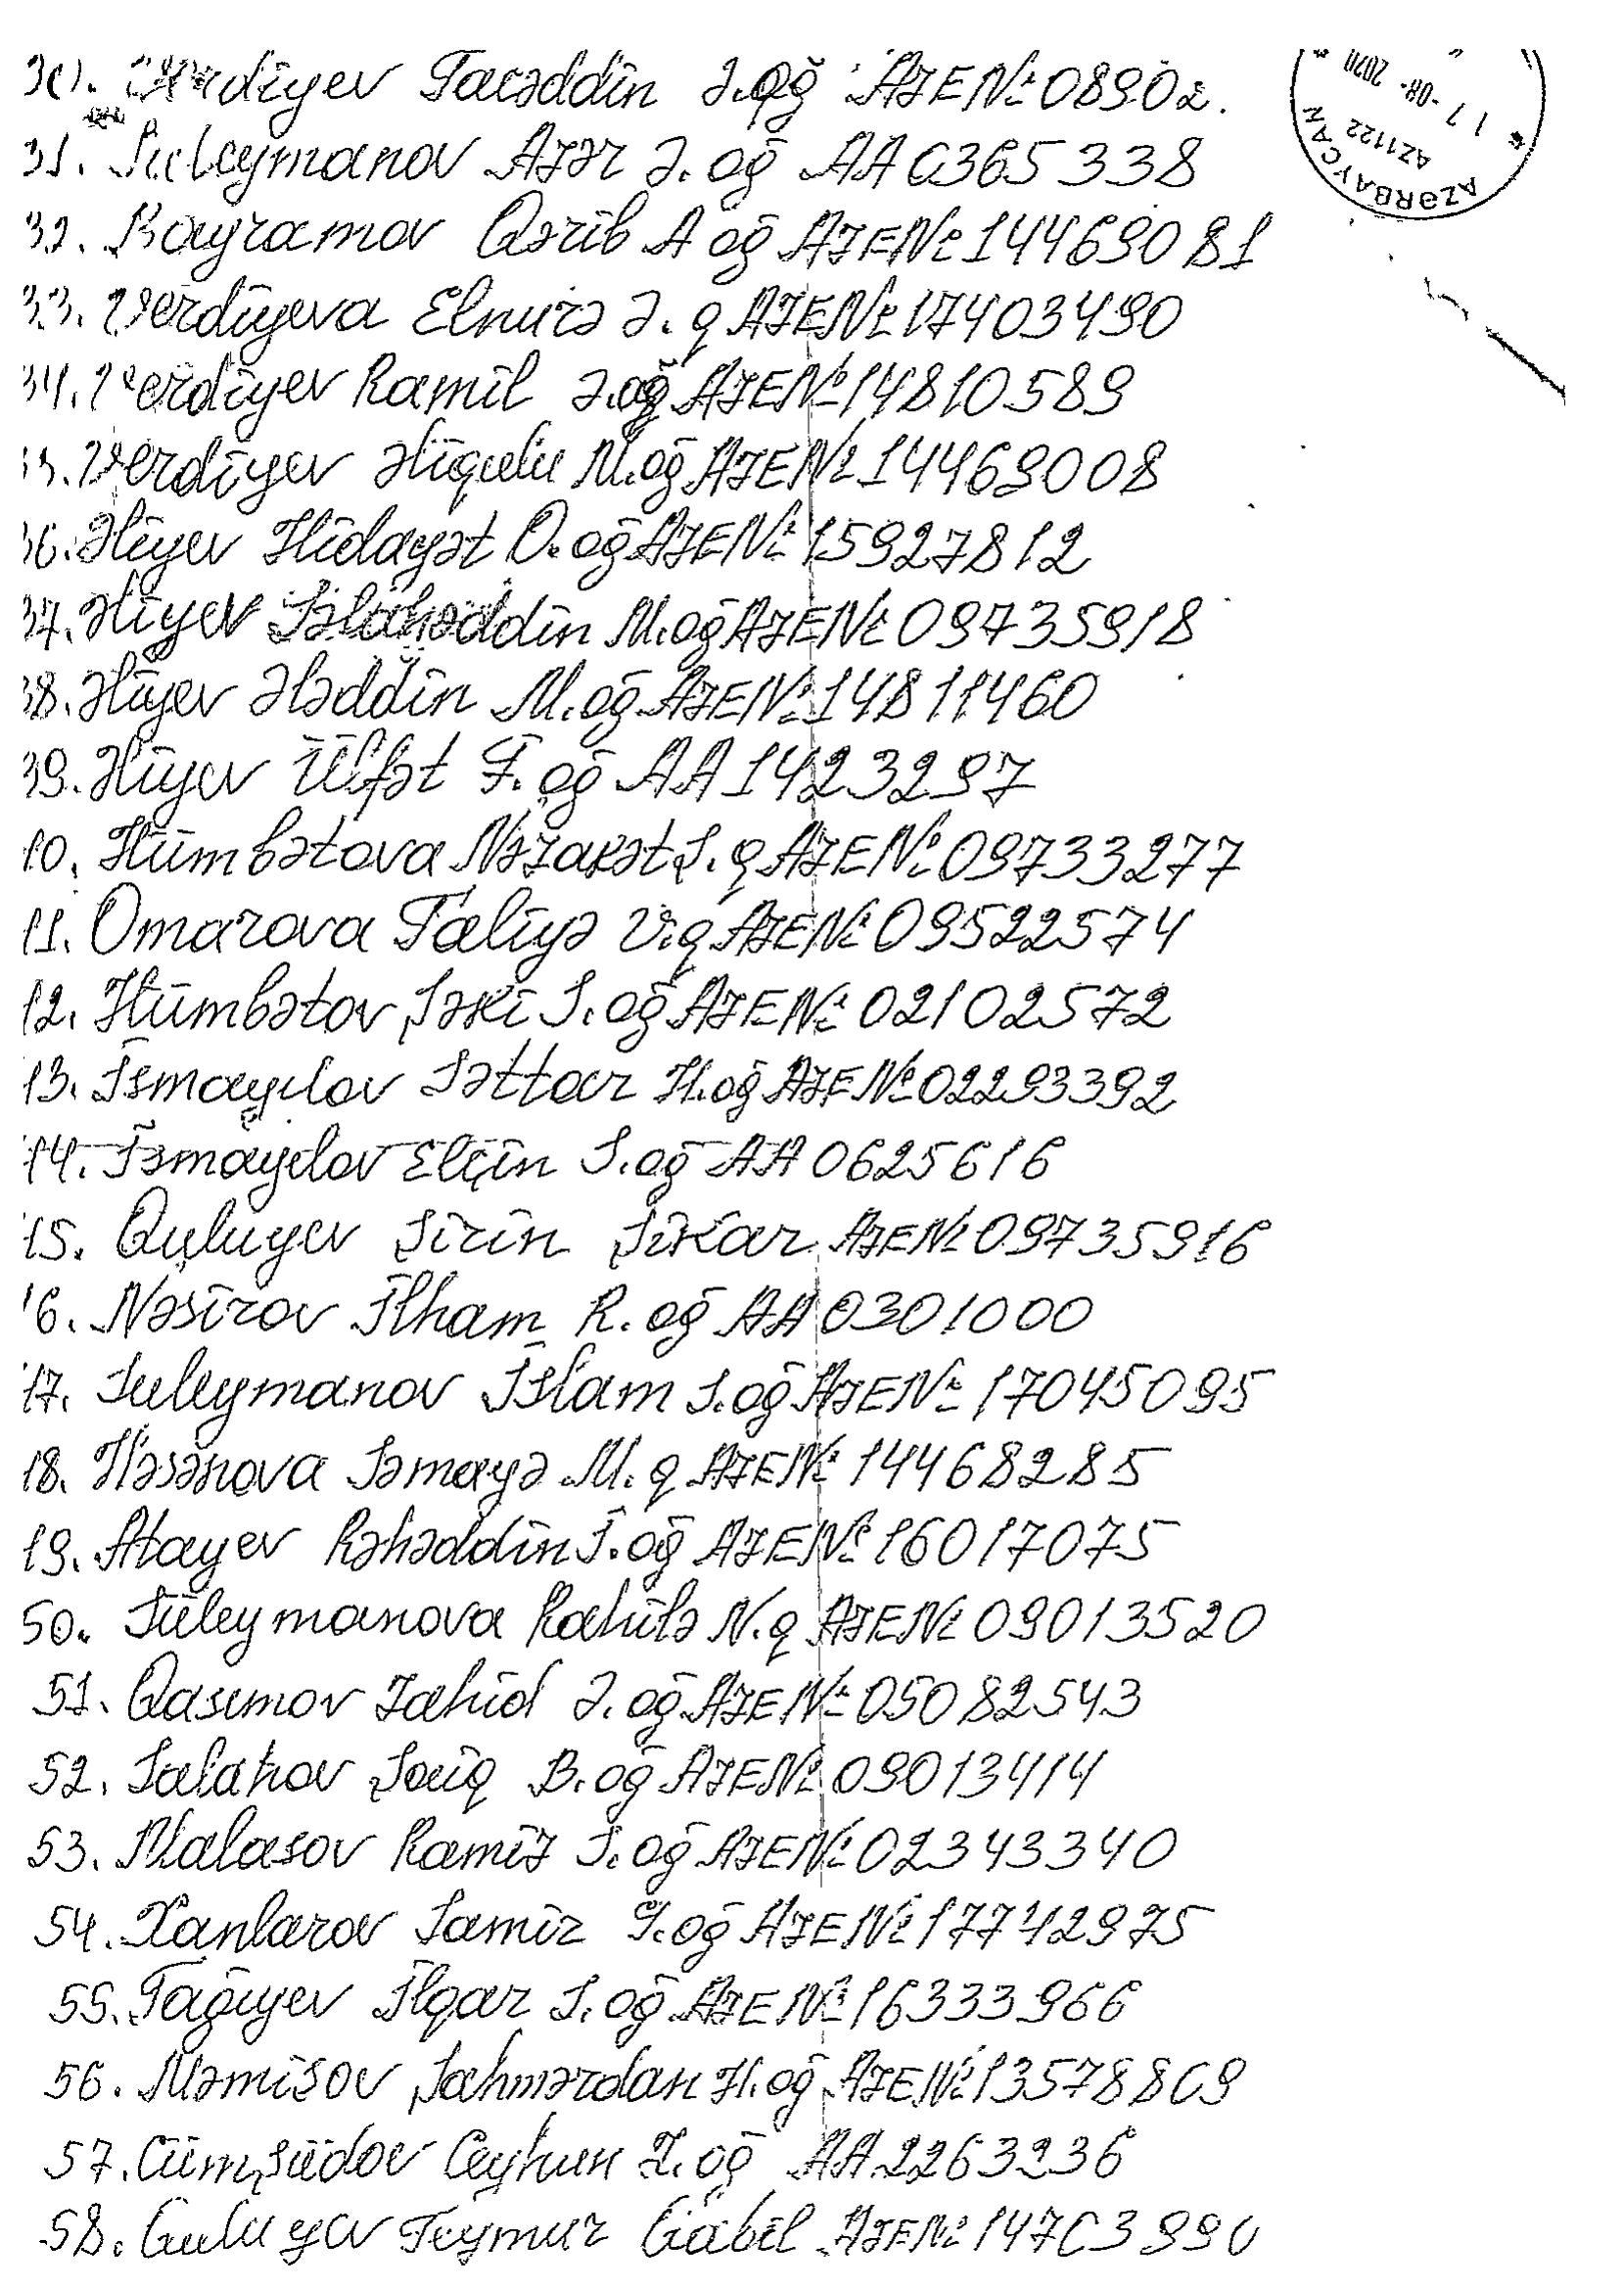 30. Verdiyev Tacəddin Ə.oğ AZE № 08902.
31. Suleymanov Azər Ə. oğ AA 0365338
32. Bayramov Qərib A oğ AZE № 14469081
33. Verdiyeva Elnurə Ə. q AZE № 17403490
34. Verdiyev Ramil Ə.oğ AZE № 14810589
35. Verdiyev Əliqulu M.oğ AZE № 14469008
36. Əliyev Hidayət O. oğ AZE № 15927812
37. Əliyev Səlahəddin M.oğ AZE № 09735918
38. Əliyev Ələddin M.oğ AZE № 14811460
39. Əliyev Ülfət F. oğ AA 1423297
40. Hümbətova Nəzakət Ş. q AZE № 09733277
41. Omarova Taliyə V.q AZE № 09522574
42. Hümbətov Şəki S. oğ AZE № 02102572
43. İsmayılov Səttar H.oğ AZE № 02293392
44. İsmayılov Elçin S.oğ AA 0625616
45. Quluyev Şirin Şikar AZE № 09735916
46. Nəsirov İlham R. oğ AA 0301000
47. Suleymanov İslam S.oğ AZE № 17045095
48. Həsənova Səmayə M. q AZE № 14468285
49. Atayev Rəhəddin İ.oğ AZE № 16017075
50. Süleymanova Rahilə N.q AZE № 09013520
51. Qasımov Zahid Ə. oğ AZE № 05082543
52. Salahov Şaiq B.oğ AZE № 09013414
53. Xalasov Ramiz S. oğ AZE № 02343340
54. Xanlarov Samir Y.oğ AZE № 17742975
55. Tağıyev İlqar S. oğ AZE № 16333966
56. Məmişov Şahmərdan H.oğ AZE № 13578809
57. Cümşüdov Ceyhun Z. oğ AA 2263236
58. Guluyev Teymur Gabil AZE № 14703990
AZƏRBAYCAN
AZ1122
17-08-2020